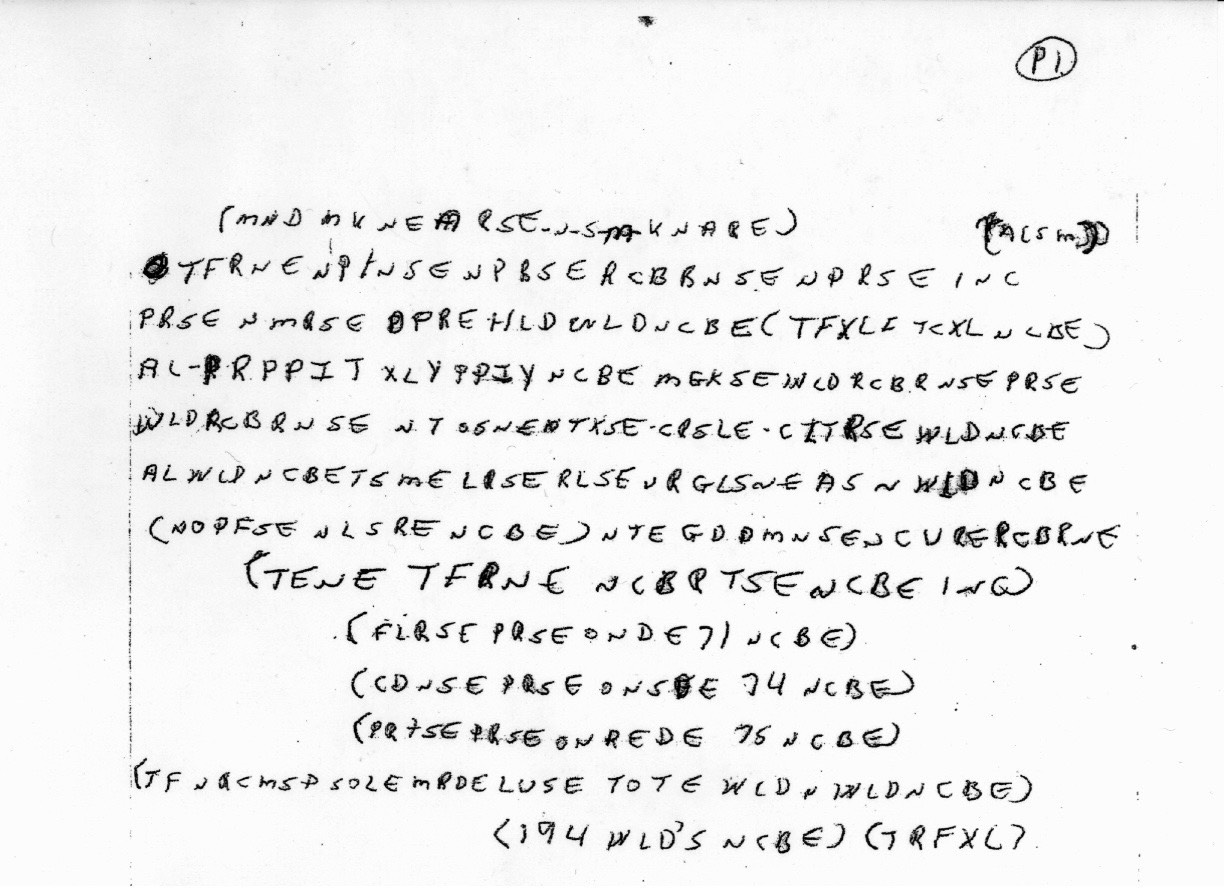 P1
(MND MKNEARSE-N-S-M-KNARE) (ACSM)
TFRNENPINSENPBSERCBBRNSENPRSEINC
PRSENMRSEOPREHLDWLDNCBE(TFXLFTCXLNCBE)
AL-PRPPIT XLYPPIYNCBE MGKSEWLDRCBRNSEPRSE
WLDRCBRNSE NTSGNENTXSE-CRSLE-CITRSEWLDNCBE
ALWLDNCBETSMELRSERLSEURGLSNEASNWLDNCBE
(NOPFSENLSRENCBE)NTEGDDMNSENCURERCBRNE
(TENETFRNENCBRTSENCBEINC)
(FLRSEPRSEONDE71NCBE)
(CDNSEPRSEONSDE74NCBE)
(PRTSEPRSEONREDE75NCBE)
(TFNRCMSPSOLEMRDELUSETOTEWLDNWLDNCBE)
(194WLD'SNCBE)(TRFXL)